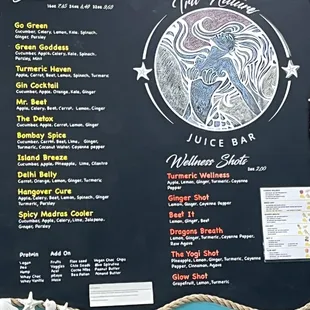 Go Green
Cucumber, Celery, Lemon, Kale, Spinach,
Ginger, Parsley
Green Goddess
Cucumber, Apple, Celery, Kale, Spinach,
Parsley, Mint
Turmeric Haven
Apple, Carrot, Beet, Lemon, Spinach, Turmeric
Gin Cocktail
Cucumber, Apple, Orange, Kale, Ginger
Mr. Beet
Apple, Celery, Beet, Carrot, Lemon, Ginger
The Detox
Cucumber, Apple, Carrot, Lemon, Ginger
Bombay Spice
Cucumber, Carrot, Beet, Lime, Ginger,
Turmeric, Coconut Water, Cayenne Pepper
Island Breeze
Cucumber, Apple, Pineapple, Lime, Cilantro
Delhi Belly
Carrot, Orange, Lemon, Ginger, Turmeric
Hangover Cure
Apple, Celery, Beet, Lemon, Spinach, Ginger
Turmeric, Parsley
Spicy Madras Cooler
Cucumber, Apple, Celery, Lime, Jalapeno,
Ginger, Parsley
Protein
Vegan
Pea
Hemp
Whey Choc
Whey Vanilla
Add On
Fruits
Veggies
Maca
Acai
Flax Seed
Chia Seeds
Bee Pollen
Vegan Choc Chips
Blue Spirulina
Peanut Butter
Almond Butter
JUICE BAR
Wellness Shots
Turmeric Wellness
Apple, Lemon, Ginger, Turmeric, Cayenne
Pepper
Ginger Shot
Lemon, Ginger, Cayenne Pepper
Beet It
Lemon, Ginger, Beet
Dragons Breath
Lemon, Ginger, Turmeric, Cayenne Pepper,
Raw Agave
The Yogi Shot
Pineapple, Lemon, Ginger, Turmeric, Cayenne
Pepper, Cinnamon, Agave
Glow Shot
Grapefruit, Lemon, Turmeric